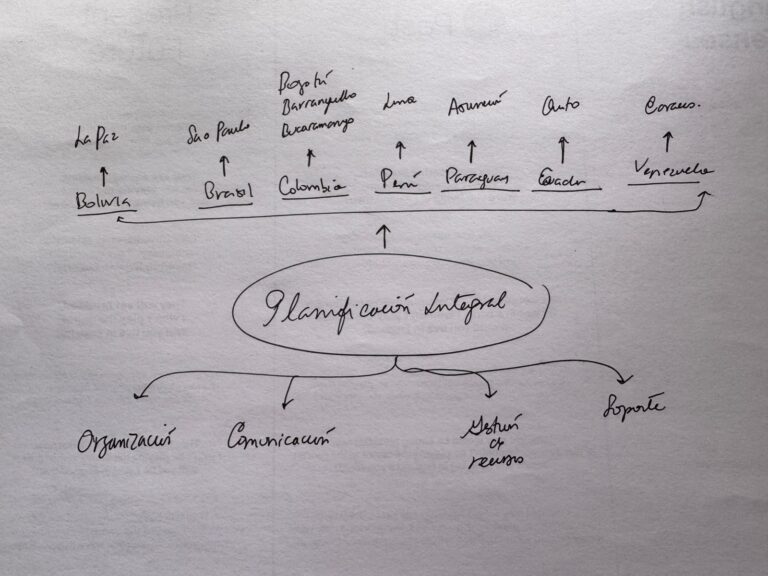 La Paz
Sao Paulo
Bogotá
Barranquilla
Bucaramanga
Lima
Asunción
Quito
Caracas.
Bolivia
Brasil
Colombia
Perú
Paraguay
Ecuador
Venezuela
Planificación Integral
Organización
Comunicación
Gestión
de
recursos
Soporte